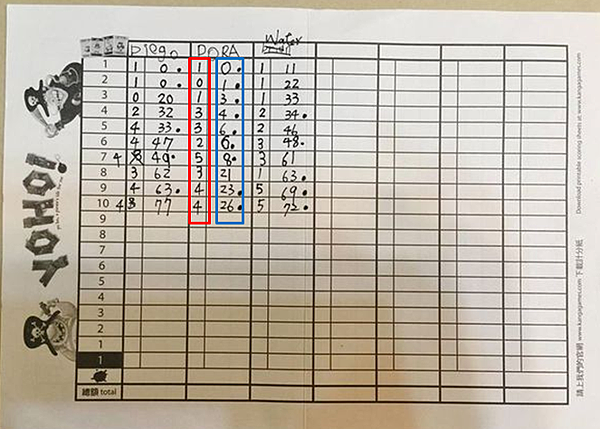 Diego DORA Water
1 1 0. 1 0. 1 11
2 1 0. 0 1. 1 22
3 0 20 1 3. 1 33
4 2 32 3 4. 2 34.
5 4 33. 3 6. 2 46
6 4 47 2 6. 3 48.
7 4 49. 5 8. 3 61
8 3 62 3 21 1 63.
9 4 63. 4 23. 5 69.
10 4 3 77 4 26. 5 72.
9
8
7
6
5
4
3
2
1
1
總額 total
YOHO!
Download printable scoring sheets at www.kangagames.com
請上我們的官網 www.kangagames.com 下載計分紙